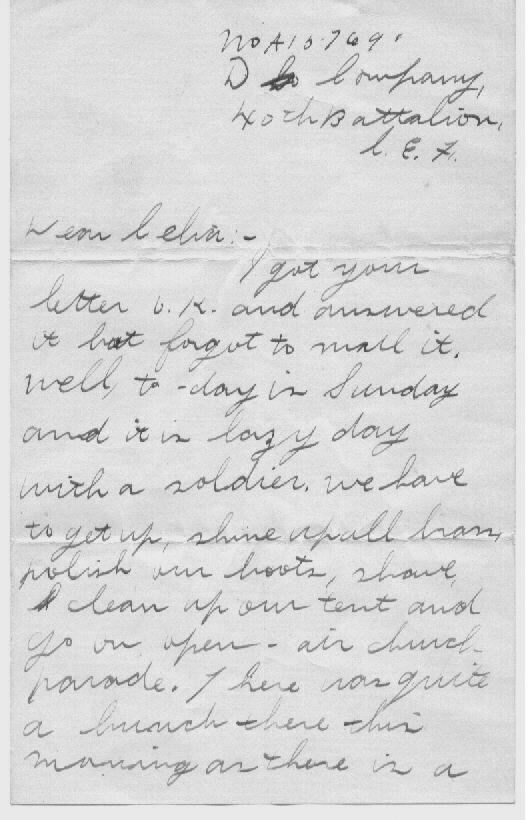 No A15769.
D Company,
40th Battalion,
C. E. F.
Dear Celia:-
I got your
letter O.K. and answered
it but forgot to mail it.
well, to-day is Sunday
and it is lazy day
with a soldier. we have
to get up, shine up all brass,
polish our boots, shave,
clean up our tent and
go on open-air church
parade. There was quite
a bunch there this
morning as there is a